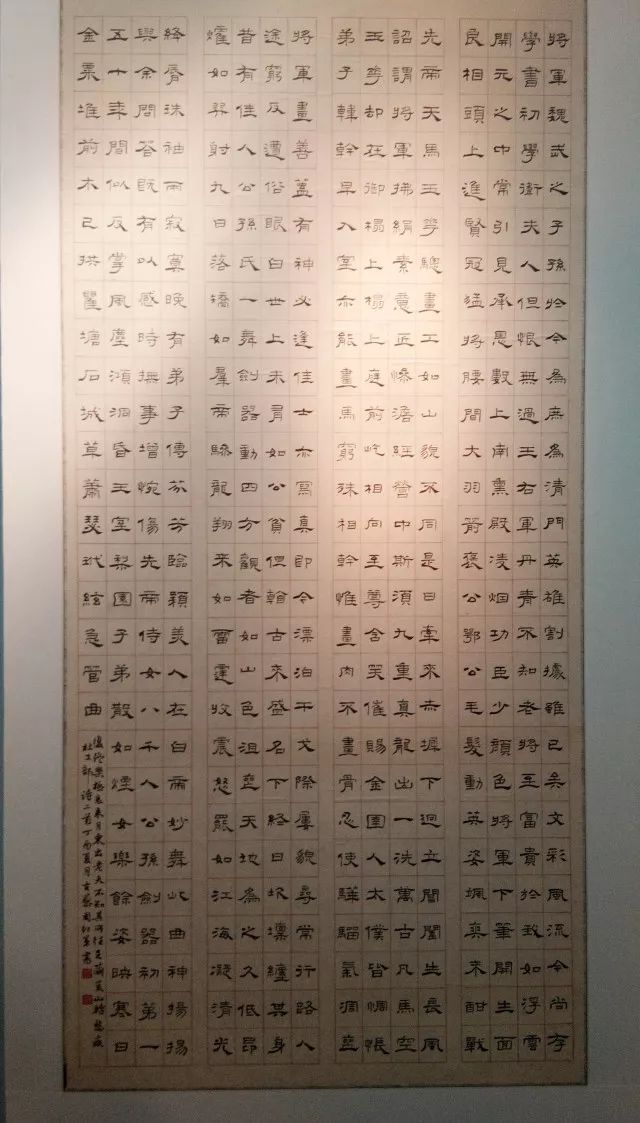 將軍魏武之子孫於今為庶為清門英雄割據雖已矣文彩風流今尚存
學書初學衛夫人但恨無過王右軍丹青不知老將至富貴於我如浮雲
開元之中常引見承恩數上南熏殿凌烟功臣少顏色將軍下筆開生面
良相頭上進賢冠猛將腰間大羽箭褒公鄂公毛髮動英姿颯爽來酣戰
先帝天馬玉華驄畫工如山貌不同是日牽來赤墀下迥立閶闔生長風
詔謂將軍拂絹素意匠慘澹經營中斯須九重真龍出一洗萬古凡馬空
玉華却在御榻上榻上庭前屹相向至尊含笑催賜金圉人太僕皆惆悵
弟子韓幹早入室亦能畫馬窮殊相幹惟畫肉不畫骨忍使驊騮氣凋喪
將軍畫善蓋有神必逢佳士亦寫真即今漂泊干戈際屢貌尋常行路人
途窮反遭俗眼白世上未有如公貧但看古來盛名下終日坎壈纏其身
昔有佳人公孫氏一舞劍器動四方觀者如山色沮喪天地為之久低昂
㸌如羿射九日落矯如羣帝驂龍翔來如雷霆收震怒罷如江海凝清光
絳脣珠袖兩寂寞晚有弟子傳芬芳臨潁美人在白帝妙舞此曲神揚揚
與余問答既有以感時撫事增惋傷先帝侍女八千人公孫劍器初第一
五十年間似反掌風塵澒洞昏王室梨園子弟散如煙女樂餘姿映寒日
金粟堆前木已拱瞿塘石城草蕭瑟玳絃急管曲
復終樂極哀來月東出老夫不知其所往足繭荒山轉愁疾
杜工部詩二首丁酉夏月古